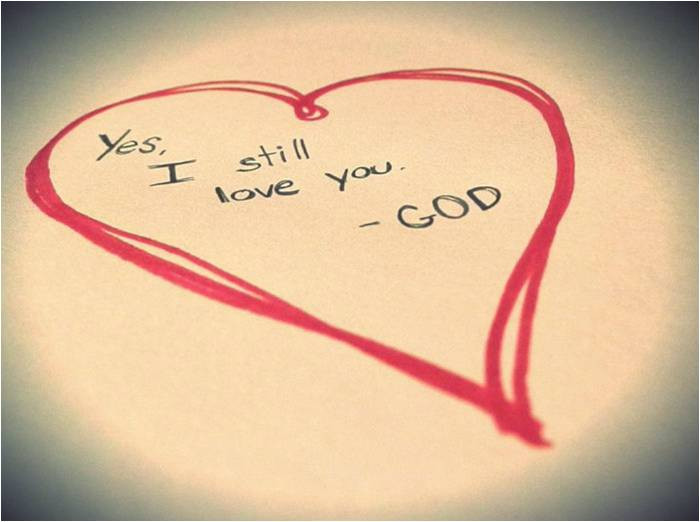 Yes,
I still
love you.
- GOD